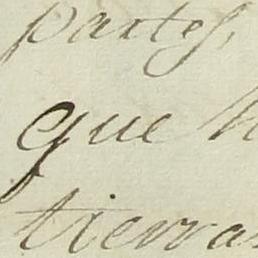 partes,
que
tierras